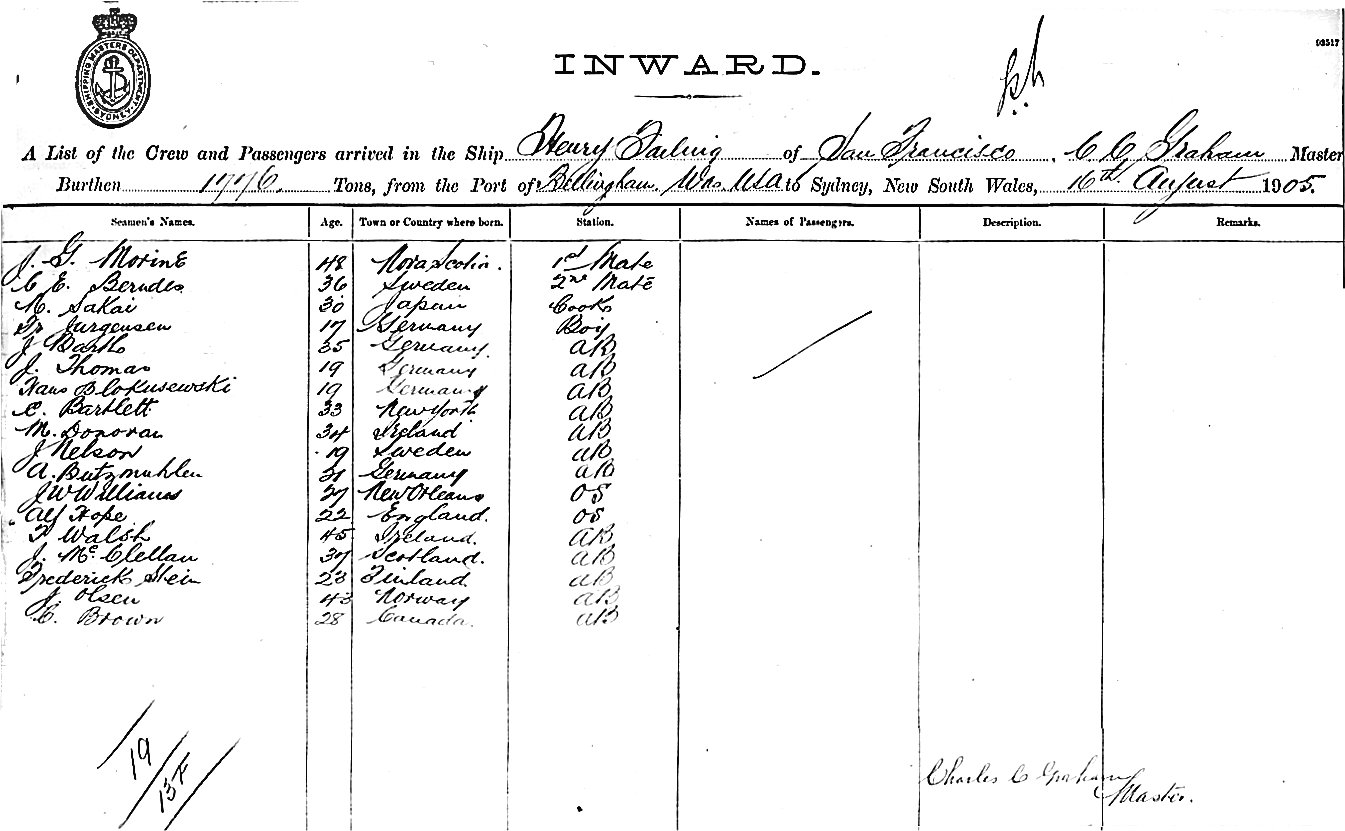 SHIPPING MASTERS DEPARTMENT
SYDNEY
93517
INWARD.
A List of the Crew and Passengers arrived in the Ship Henry Failing of San Francisco, C C Graham Master
Burthen 1776 Tons, from the Port of Bellingham. Wns. USA to Sydney, New South Wales, 16th August 1905.
Seamen's Names. Age. Town or Country where born. Station. Names of Passengers. Description. Remarks.
J. G. Morine 48 Nova Scotia. 1st Mate
C E. Berndes 36 Sweden 2nd Mate
Sakai 30 Japan Cook
Jurgensen 17 Germany Boy
J Barth 35 Germany. AB
J. Thomas 19 Germany AB
Hans Blokusewski 19 Germany AB
C. Bartlett 33 New York AB
M. Donovan 34 Ireland AB
J Nelson 19 Sweden AB
A. Butzmuhlen 31 Germany AB
J W Williams 27 New Orleans OS
Alf Hope 22 England. OS
Walsh 45 Ireland. AB
J. McClellan 37 Scotland. AB
Frederick Stein 23 Finland. AB
J. Olsen 43 Norway AB
C. Brown 28 Canada. AB
19
Charles C Graham
Master.